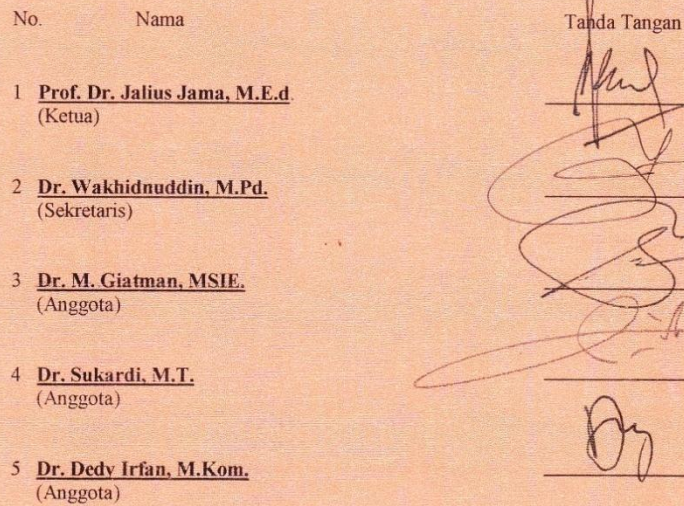 No. Nama Tanda Tangan
1 Prof. Dr. Jalius Jama, M.E.d.
(Ketua)
2 Dr. Wakhidnuddin, M.Pd.
(Sekretaris)
3 Dr. M. Giatman, MSIE.
(Anggota)
4 Dr. Sukardi, M.T.
(Anggota)
5 Dr. Dedy Irfan, M.Kom.
(Anggota)